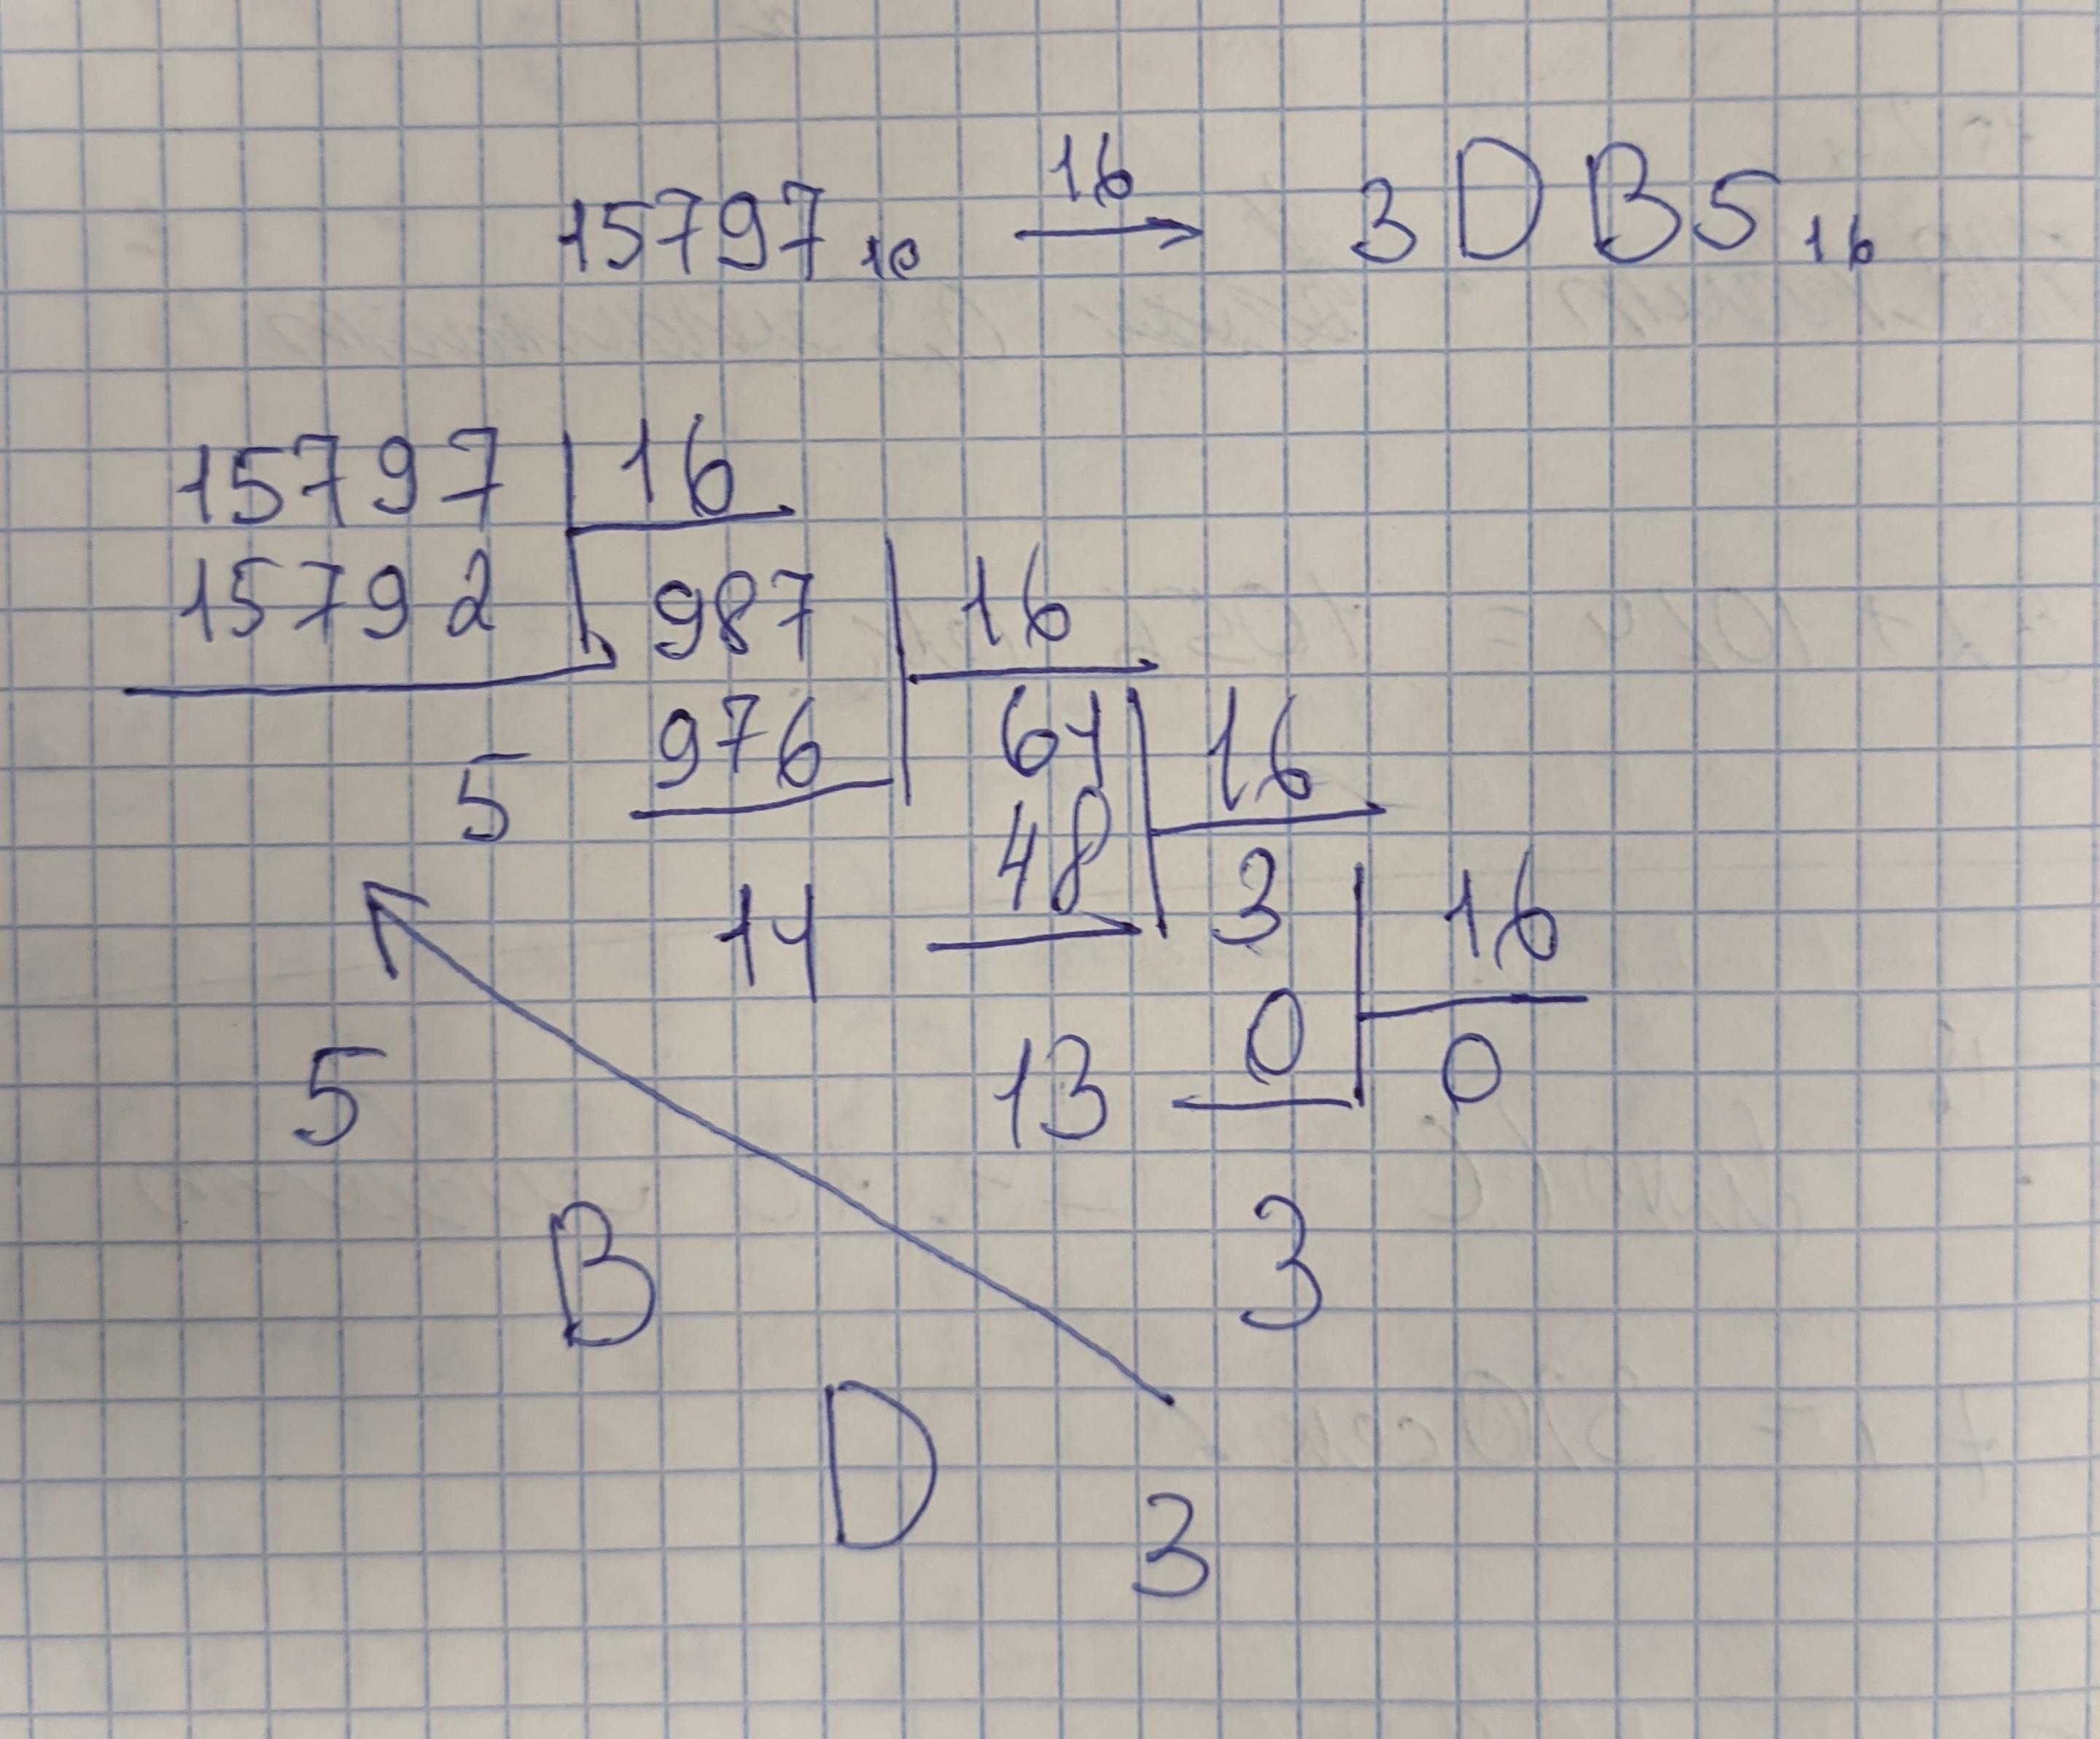 15797₁₀ 16→ 3DB5₁₆
15797 | 16
15792 | 987 | 16
5 976 | 61 | 16
11 48 | 3 | 16
13 0 | 0
3
5
B
D
3